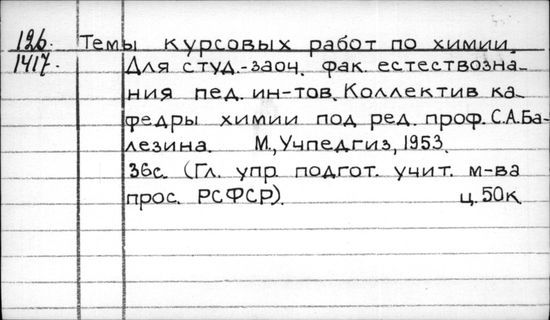 126. Темы курсовых работ по химии.
1417. Для студ.-заоч. фак. естествозна-
ния пед. ин-тов. Коллектив ка-
федры химии под ред. проф. С.А.Ба-
лезина. М., Учпедгиз, 1953.
36с. (Гл. упр. подгот. учит. м-ва
прос. РСФСР). ц. 50к.